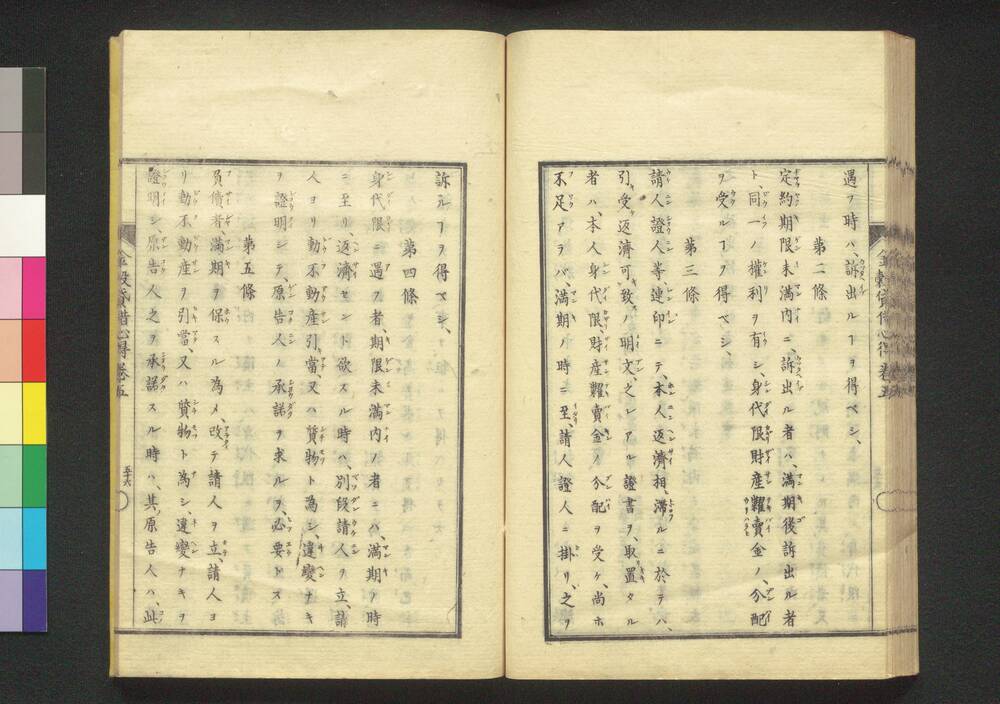 遇フ時ハ、訴出ルヿヲ得ベシ、
第二條
定約期限未滿内ニ、訴出ル者ハ、滿期後訴出ル者
ト、同一ノ權利ヲ有シ、身代限財産糶賣金ノ、分配
ヲ受ルヿヲ得ベシ、
第三條
請人證人等連印ニテ、本人返濟相滯ルニ於テハ、
引受返濟可致ノ明文、之レアル證書ヲ、取置タル
者ハ、本人身代限、財産糶賣金ノ分配ヲ受ケ、尚ホ
不足アラバ、滿期ノ時ニ至、請人證人ニ掛リ、之ヲ
訴ルヿヲ得ベシ、
第四條
身代限ニ遇フ者、期限未滿内ノ者ニハ、滿期ノ時
ニ至リ、返濟セント欲スル時ハ、別段請人ヲ立、請
人ヨリ動不動産引當、又ハ質物ト為シ、違變ナキ
ヲ證明シテ、原告人ノ承諾ヲ求ルヲ、必要トス
第五條
負債者、滿期ヲ保スル為メ、改テ請人ヲ立、請人ヨ
リ動不動産ヲ引當、又ハ質物ト為シ、違變ナキヲ
證明シ、原告人之ヲ承諾スル時ハ、其原告人ハ、此
金穀貸借心得 卷五
五十六